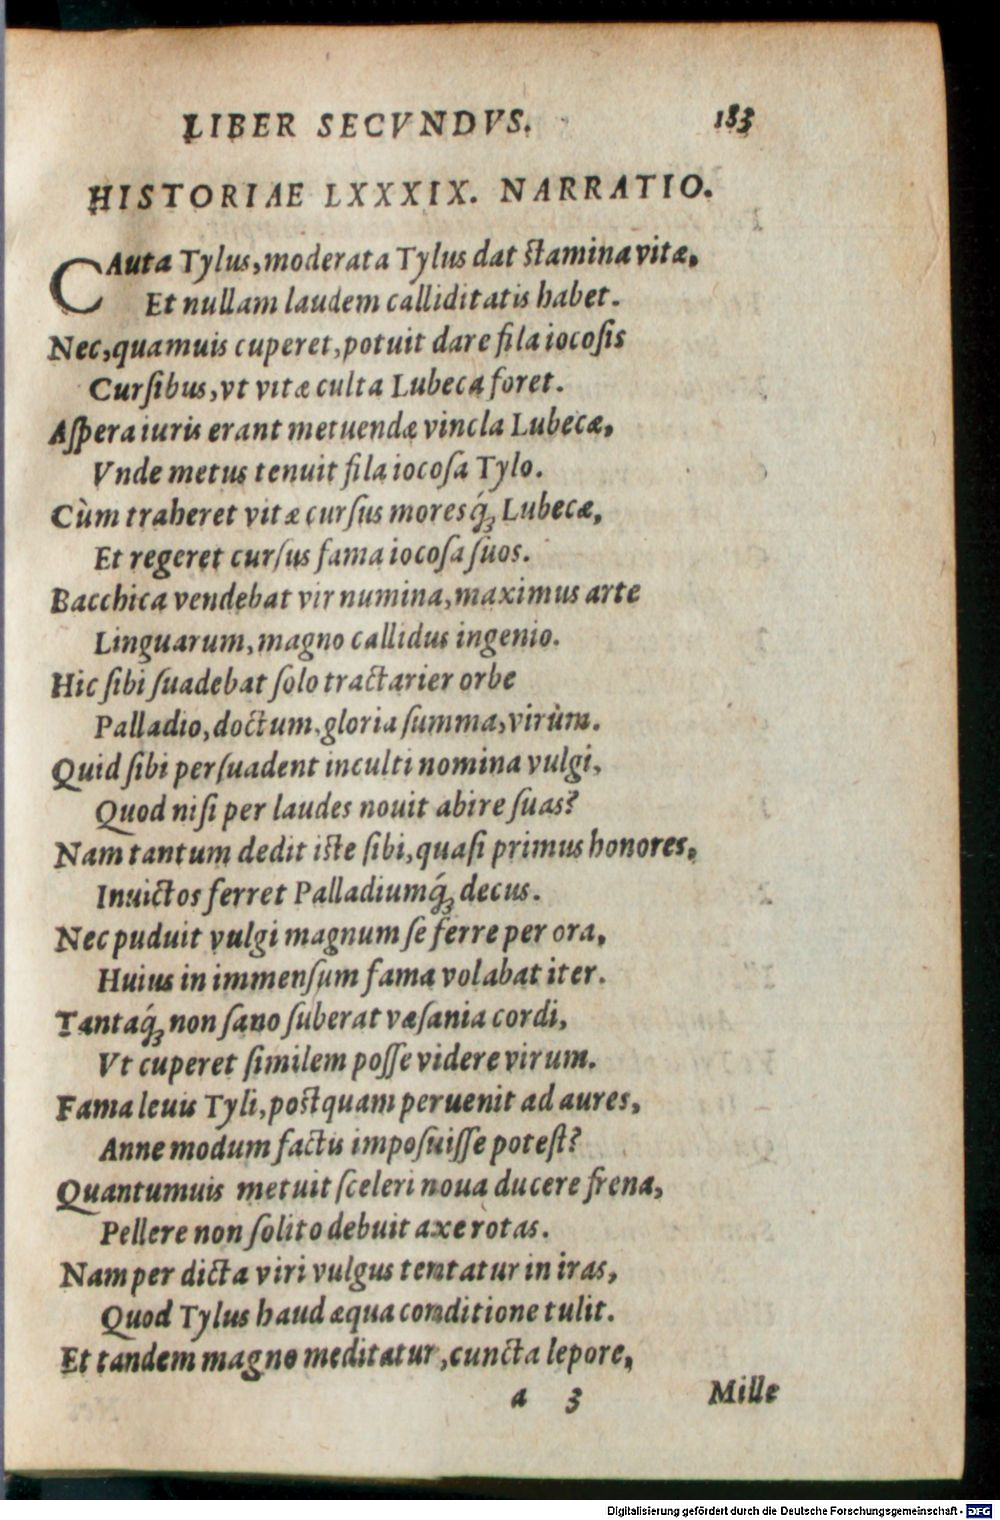 LIBER SECVNDVS. 183
HISTORIAE LXXXIX. NARRATIO.
CAuta Tylus, moderata Tylus dat stamina vitæ,
Et nullam laudem calliditatis habet.
Nec, quamuis cuperet, potuit dare fila iocosis
Cursibus, vt vitæ culta Lubeca foret.
Aspera iuris erant metuendæ vincla Lubecæ,
Vnde metus tenuit fila iocosa Tylo.
Cùm traheret vitæ cursus moresq́; Lubecæ,
Et regeret cursus fama iocosa suos.
Bacchica vendebat vir numina, maximus arte
Linguarum, magno callidus ingenio.
Hic sibi suadebat solo tractarier orbe
Palladio, doctum, gloria summa, virùm.
Quid sibi persuadent inculti nomina vulgi,
Quod nisi per laudes nouit abire suas?
Nam tantum dedit iste sibi, quasi primus honores,
Inuictos ferret Palladiumq́; decus.
Nec puduit vulgi magnum se ferre per ora,
Huius in immensum fama volabat iter.
Tantaq́; non sano suberat væsania cordi,
Vt cuperet similem posse videre virum.
Fama leuis Tyli, postquam peruenit ad aures,
Anne modum factis imposuisse potest?
Quantumuis metuit sceleri noua ducere frena,
Pellere non solito debuit axe rotas.
Nam per dicta viri vulgus tentatur in iras,
Quod Tylus haud æqua conditione tulit.
Et tandem magno meditatur, cuncta lepore,
a 3 Mille
Digitalisierung gefördert durch die Deutsche Forschungsgemeinschaft - DFG